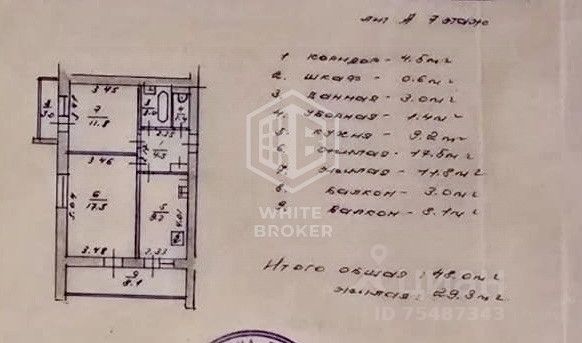 лит А 7 этаж
1 коридор - 4.5 м²
2. шкаф - 0.6 м²
3 ванная - 3.0 м²
4. уборная - 1.4 м²
5 кухня - 9.2 м²
6 жилая - 17.5 м²
7 жилая - 11.8 м²
8 балкон - 3.0 м²
9. балкон - 8.1 м²
Итого общая : 48.0 м²
жилая : 29.3 м²
3.45
7
11.8
3.46
2.35
1
4.5
6
17.5
5.04
5
4.01
3.48
2.33
9
8.1
WHITE
BROKER
циан
ID 75487343